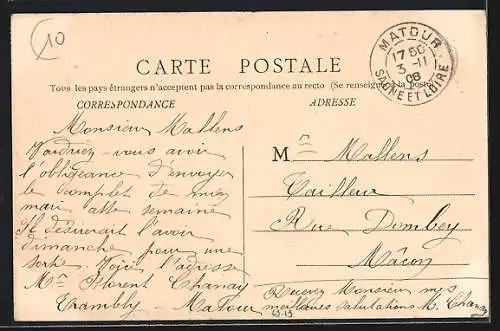 10
MATOUR
17 50
3 -11
08
SAONE ET LOIRE
CARTE POSTALE
Tous les pays étrangers n'acceptent pas la correspondance au recto (Se renseigner à la poste)
CORRESPONDANCE
ADRESSE
Monsieur Mallens
Voudriez-vous avoir
l'obligeance d'envoyer
le complet de mon
mari cette semaine
Il désirerait l'avoir
dimanche pour une
sortie Voici l'adresse
Mr Florent Chanay
Trambly - Matour
M Mallens
Tailleur
Rue Dombey
Mâcon
Recevez Monsieur mes
meilleures salutations M. Chanay